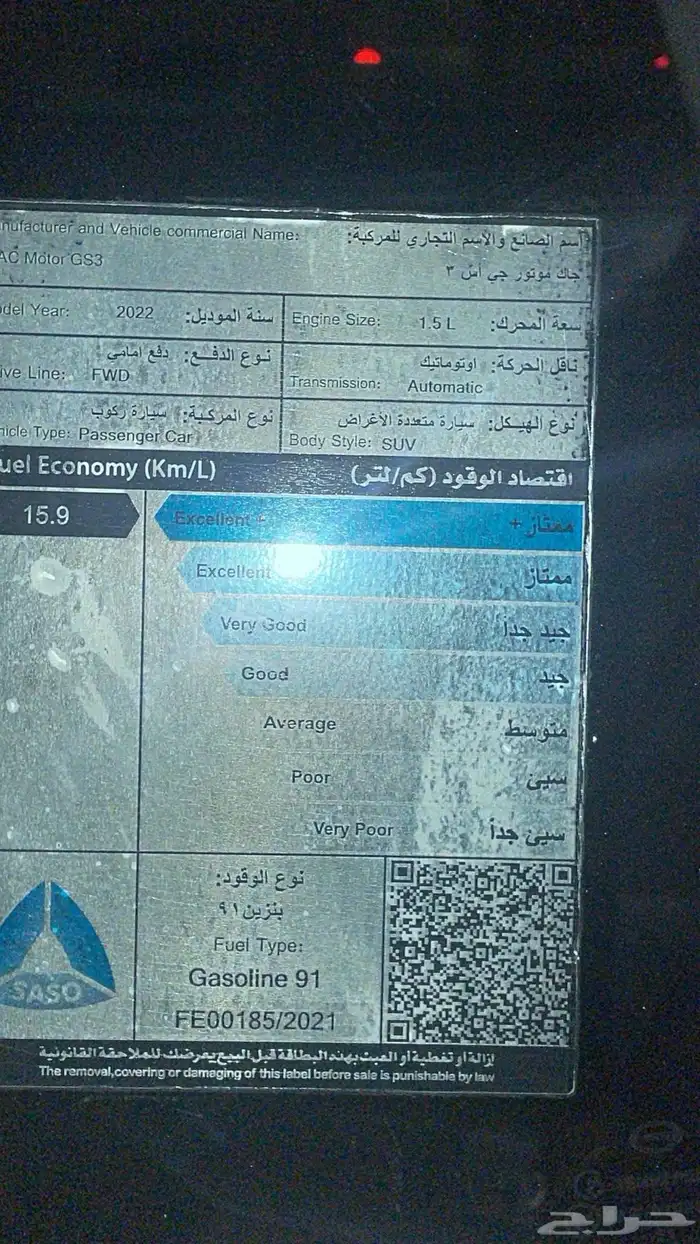 nufacturer and Vehicle commercial Name: اسم الصانع والاسم التجاري للمركبة:
AC Motor GS3 جاك موتور جي اس ٣
del Year: 2022 سنة الموديل: Engine Size: 1.5 L سعة المحرك:
نوع الدفع: دفع امامي ناقل الحركة: اوتوماتيك
ive Line: FWD Transmission: Automatic
نوع المركبة: سيارة ركوب نوع الهيكل: سيارة متعددة الأغراض
hicle Type: Passenger Car Body Style: SUV
uel Economy (Km/L) اقتصاد الوقود (كم/لتر)
15.9 Excellent + ممتاز +
Excellent ممتاز
Very Good جيد جداً
Good جيد
Average متوسط
Poor سيئ
Very Poor سيئ جداً
نوع الوقود:
بنزين ٩١
Fuel Type:
Gasoline 91
SASO
FE00185/2021
إزالة أو تغطية أو العبث بهذه البطاقة قبل البيع يعرضك للملاحقة القانونية
The removal,covering or damaging of this label before sale is punishable by law
حراج